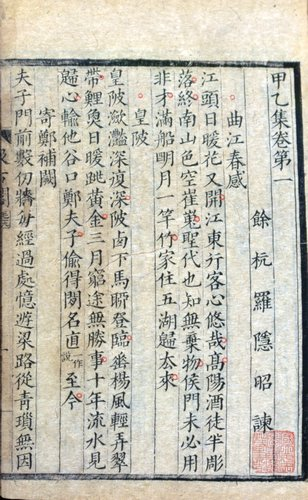 甲乙集卷第一
餘杭羅隱昭諫
曲江春感
江頭日暖花又開江東行客心悠哉高陽酒徒半彫
落終南山色空崔嵬聖代也知無棄物侯門未必用
非才滿船明月一竿竹家住五湖歸厺來
皇陂
皇陂瀲灧深復深陂卤下馬聊登臨垂楊風輕弄翠
帶鯉魚日暖跳黃金三月窮途無勝事十年流水見
歸心輸他谷口鄭夫子偷得閑名直一作說至今
寄鄭補闕
夫子門前數仞牆每經過處憶遊梁路從青瑣無因